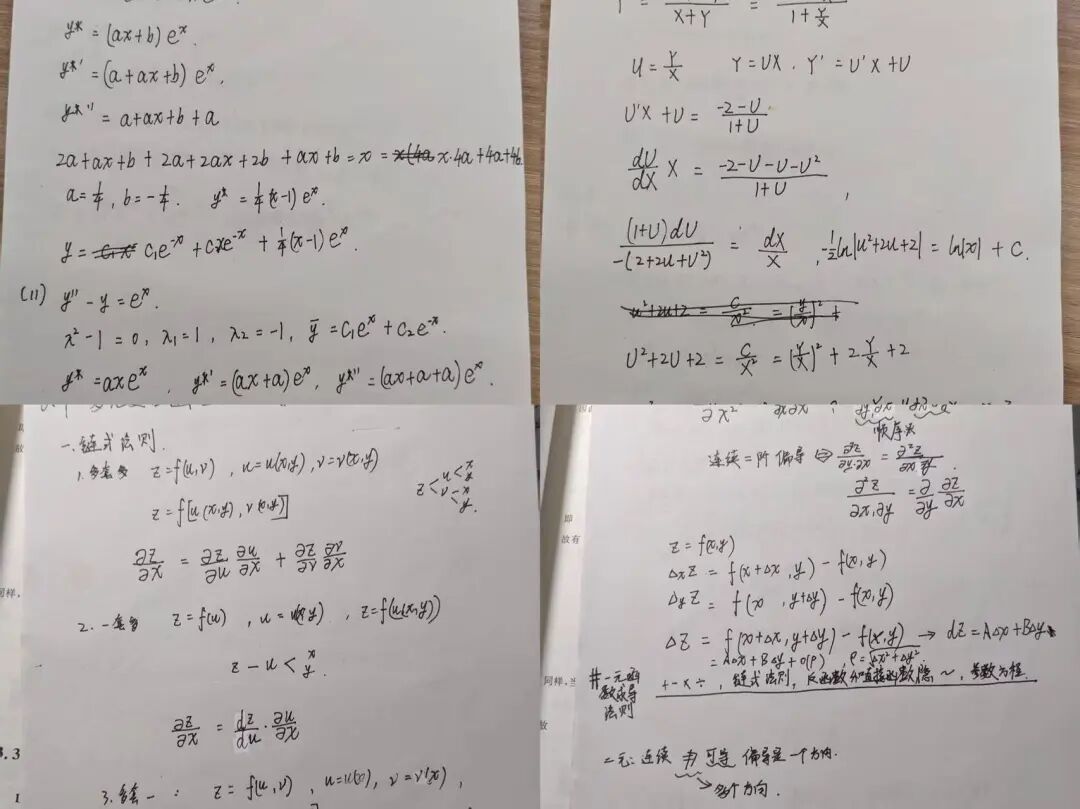 y* = (ax+b) eˣ.
y*' = (a+ax+b) eˣ,
y*'' = a+ax+b+a
2a+ax+b + 2a+2ax+2b +ax+b = x = x·4a+4a+4b
a=1/4, b=-1/4. y* = 1/4(x-1) eˣ.
y = c₁e⁻ˣ + c₂xe⁻ˣ + 1/4(x-1) eˣ.
(11) y'' - y = eˣ.
λ²-1=0, λ₁=1, λ₂=-1, ȳ=C₁eˣ+C₂e⁻ˣ.
y* = axeˣ, y*' = (ax+a)eˣ, y*'' = (ax+a+a)eˣ.
X+Y 1+Y/X
U = Y/X Y=UX, Y'=U'X+U
U'X+U = (-2-U)/(1+U)
dU/dX X = (-2-U-U-U²)/(1+U),
(1+U)dU/-(2+2U+U²) = dX/X, -1/2 ln|U²+2U+2| = ln|x| + C.
U²+2U+2 = C/X² = (Y/X)² + 2Y/X + 2
一. 链式法则.
1. 多套多 z=f(u,v), u=u(x,y), v=v(x,y)
z<u<x y v<x y.
z=f[u(x,y), v(x,y)]
∂z/∂x = ∂z/∂u ∂u/∂x + ∂z/∂v ∂v/∂x
2. 一套多 z=f(u), u=u(x,y), z=f(u(x,y))
z-u<x y.
∂z/∂x = dz/du·∂u/∂x
3. 多套一: z=f(u,v), u=u(x), v=v(x),
顺序关
连续二阶偏导 ⇒ ∂²z/∂y·∂x = ∂²z/∂x∂y.
∂²z/∂x,∂y = ∂/∂y ∂z/∂x
z=f(x,y)
ΔxZ = f(x+Δx, y) - f(x,y)
ΔyZ = f(x, y+Δy) - f(x,y)
ΔZ = f(x+Δx, y+Δy) - f(x,y) → dZ=AΔx+BΔy
= AΔx+BΔy+o(ρ), ρ=√Δx²+Δy²
#一元函数求导法则
+-×÷, 链式法则, 反函数和直接函数, 隐~, 参数方程.
二元: 连续 可导 偏导是一个方向.
多个方向.
3.3
1
同样,
即
故有
同样, 当
故